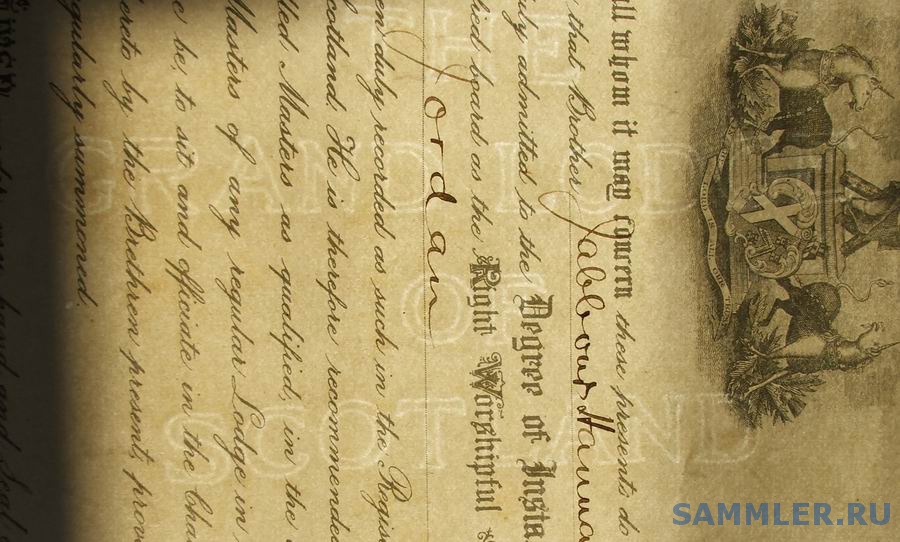 all whom it may concern these presents do
that Brother Jabbour Hanna
duly admitted to the Degree of Insta
lied board as the Right Worshipful
Jordan
en duly recorded as such in the Regis
cotland. He is therefore recommende
lled Masters as qualified, in the
Masters of any regular Lodge in
e be, to sit and officiate in the Cha
ereto by the Brethren present, prov
egularly summoned.
hand and Seal
THE
GRAND LODGE
OF
SCOTLAND
SAMMLER.RU